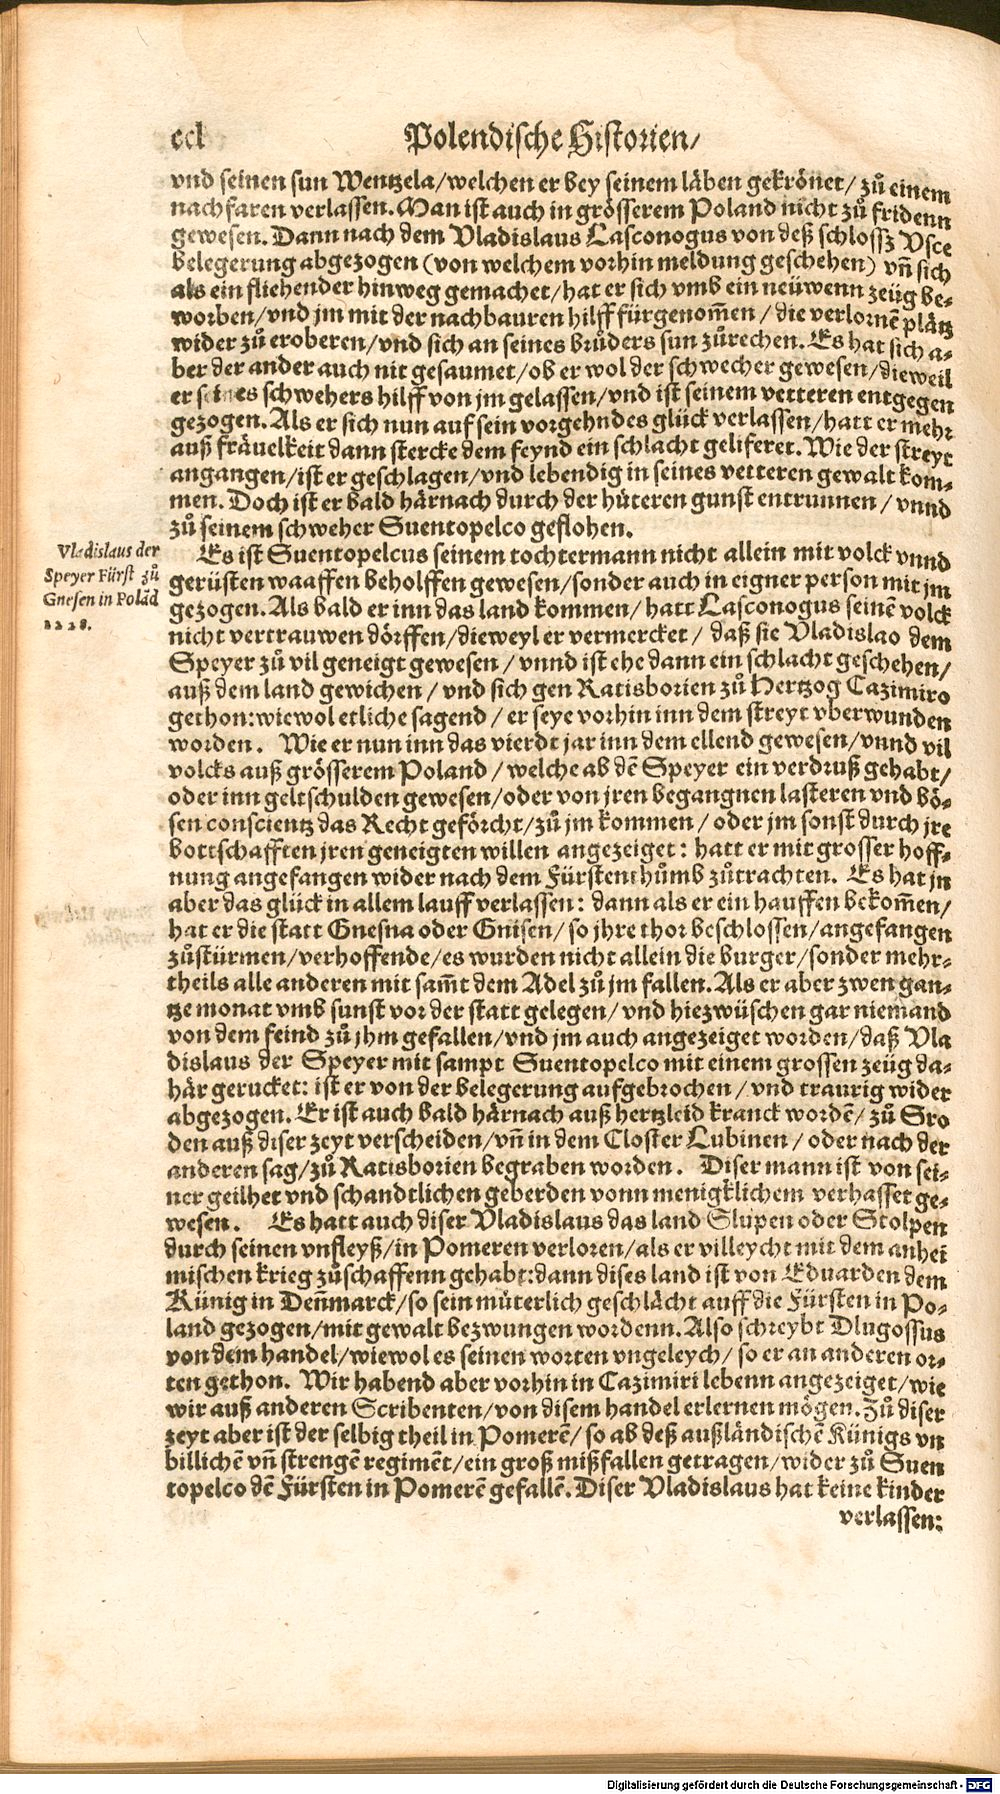 ccl Polendische Historien/
vnd seinen sun Wentzela/welchen er bey seinem läben gekrönet/ zů einem
nachfaren verlassen. Man ist auch in grösserem Poland nicht zů fridenn
gewesen. Dann nach dem Vladislaus Lasconogus von deß schlossz Vsce
belegerung abgezogen (von welchem vorhin meldung geschehen) vñ sich
als ein fliehender hinweg gemachet/hat er sich vmb ein neüwenn zeüg be⸗
worben/vnd jm mit der nachbauren hilff fürgenom̃en / die verlornẽ plätz
wider zů eroberen/vnd sich an seines brůders sun zůrechen. Es hat sich a⸗
ber der ander auch nit gesaumet/ob er wol der schwecher gewesen/dieweil
er seines schwehers hilff von jm gelassen/vnd ist seinem vetteren entgegen
gezogen. Als er sich nun auf sein vorgehndes glück verlassen/hatt er mehr
auß fräuelkeit dann stercke dem feynd ein schlacht geliferet. Wie der streyt
angangen/ist er geschlagen/vnd lebendig in seines vetteren gewalt kom⸗
men. Doch ist er bald härnach durch der hüteren gunst entrunnen / vnnd
zů seinem schweher Suentopelco geflohen.
Vladislaus der
Speyer Fürst zů
Gnesen in Polãd
1228.
Es ist Suentopelcus seinem tochtermann nicht allein mit volck vnnd
gerüsten waaffen beholffen gewesen/sonder auch in eigner person mit jm
gezogen. Als bald er inn das land kommen/ hatt Lasconogus seinẽ volck
nicht vertrauwen dörffen/dieweyl er vermercket / daß sie Vladislao dem
Speyer zů vil geneigt gewesen / vnnd ist ehe dann ein schlacht geschehen/
auß dem land gewichen / vnd sich gen Ratisborien zů Hertzog Cazimiro
gethon:wiewol etliche sagend / er seye vorhin inn dem streyt vberwunden
worden. Wie er nun inn das vierdt jar inn dem ellend gewesen/vnnd vil
volcks auß grösserem Poland / welche ab dẽ Speyer ein verdruß gehabt/
oder inn geltschulden gewesen/oder von jren begangnen lasteren vnd bö⸗
sen conscientz das Recht geförcht/zů jm kommen / oder jm sonst durch jre
bottschafften jren geneigten willen angezeiget: hatt er mit grosser hoff⸗
nung angefangen wider nach dem Fürstenthůmb zůtrachten. Es hat jn
aber das glück in allem lauff verlassen: dann als er ein hauffen bekom̃en/
hat er die statt Gnesna oder Gnisen/ so jhre thor beschlossen/angefangen
zůstürmen/verhoffende/es wurden nicht allein die burger/sonder mehr⸗
theils alle anderen mit sam̃t dem Adel zů jm fallen. Als er aber zwen gan⸗
tze monat vmb sunst vor der statt gelegen/ vnd hiezwüschen gar niemand
von dem feind zů jhm gefallen/vnd jm auch angezeiget worden/daß Vla
dislaus der Speyer mit sampt Suentopelco mit einem grossen zeüg da⸗
här gerucket: ist er von der belegerung aufgebrochen / vnd traurig wider
abgezogen. Er ist auch bald härnach auß hertzleid kranck wordẽ/ zů Sro
den auß diser zeyt verscheiden/vñ in dem Closter Lubinen / oder nach der
anderen sag/zů Ratisborien begraben worden. Diser mann ist von sei⸗
ner geilhet vnd schandtlichen geberden vonn menigklichem verhasset ge⸗
wesen. Es hatt auch diser Vladislaus das land Slupen oder Stolpen
durch seinen vnfleyß/in Pomeren verloren/als er villeycht mit dem anhei
mischen krieg zůschaffenn gehabt:dann dises land ist von Eduarden dem
Künig in Deñmarck/so sein müterlich geschlächt auff die Fürsten in Po⸗
land gezogen/mit gewalt bezwungen wordenn. Also schreybt Dlugossus
von dem handel/wiewol es seinen worten vngeleych/ so er an anderen or⸗
ten gethon. Wir habend aber vorhin in Cazimiri lebenn angezeiget/wie
wir auß anderen Scribenten/von disem handel erlernen mögen. Zů diser
zeyt aber ist der selbig theil in Pomerẽ/ so ab deß außländischẽ Künigs vn
billichẽ vñ strengẽ regimẽt/ein groß mißfallen getragen/wider zů Suen
topelco dẽ Fürsten in Pomerẽ gefallẽ. Diser Vladislaus hat keine kinder
verlassen:
Digitalisierung gefördert durch die Deutsche Forschungsgemeinschaft - DFG